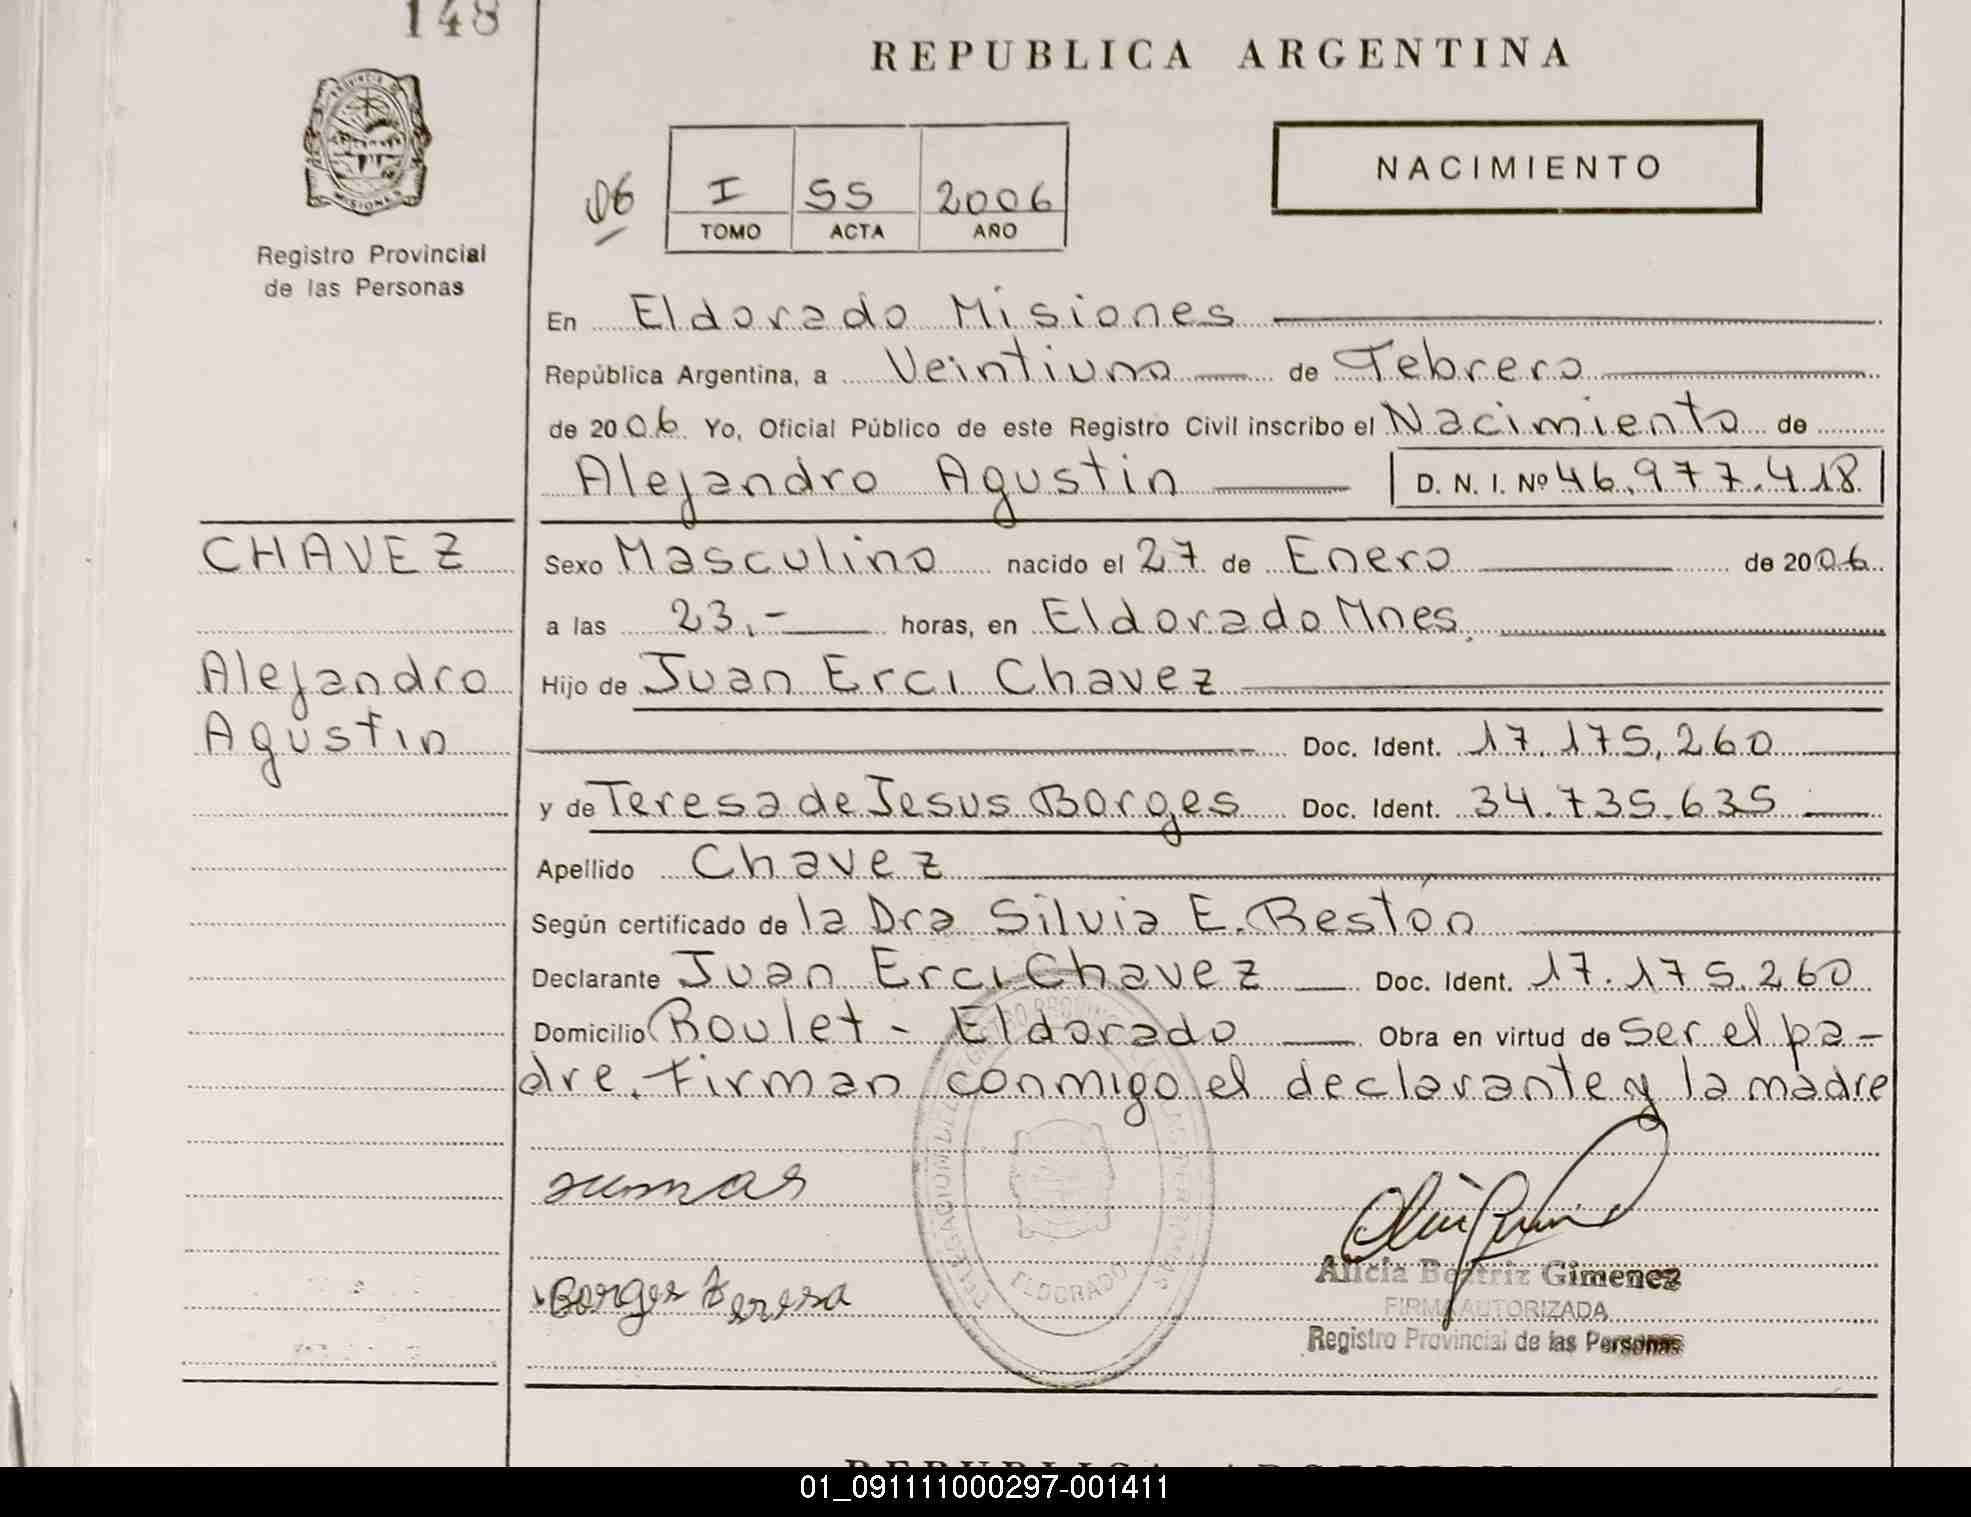 148
REPUBLICA ARGENTINA
PROVINCIA DE
MISIONES
Registro Provincial
de las Personas
06
I 55 2006
TOMO ACTA AÑO
NACIMIENTO
En Eldorado Misiones
República Argentina, a Veintiuno de Febrero
de 2006. Yo, Oficial Público de este Registro Civil inscribo el Nacimiento de
Alejandro Agustin D. N. I. Nº 46.977.418
CHAVEZ
Alejandro
Agustin
Sexo Masculino nacido el 27 de Enero de 2006
a las 23.- horas, en Eldorado Mnes.
Hijo de Juan Erci Chavez
Doc. Ident. 17.175.260
y de Teresa de Jesus Borges Doc. Ident. 34.735.635
Apellido Chavez
Según certificado de la Dra Silvia E. Restón
Declarante Juan Erci Chavez Doc. Ident. 17.175.260
Domicilio Roulet - Eldorado Obra en virtud de ser el pa-
dre. Firman conmigo el declarante y la madre
Borges Teresa
ELDORADO
Alicia Beatriz Gimenez
FIRMA AUTORIZADA
Registro Provincial de las Personas
REPUBLICA ARGENTINA
01_091111000297-001411